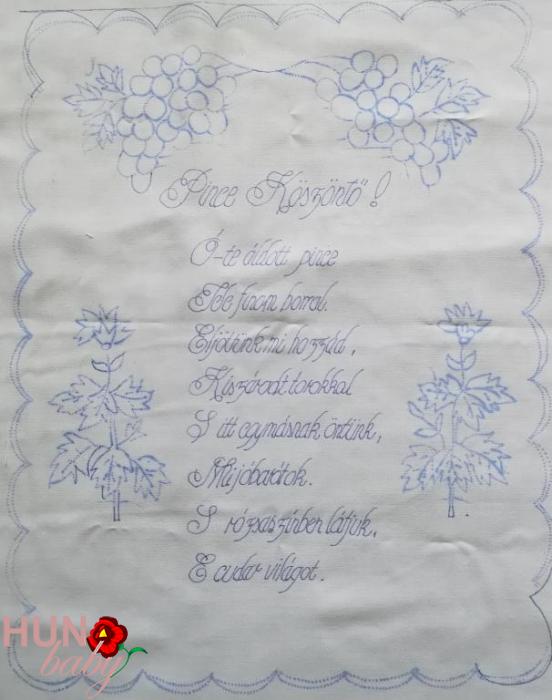 Pince Köszöntő!
Ó-te áldott pince
Tele finom borral.
Eljöttünk mi hozzád,
Kiszáradt torokkal
S itt egymásnak öntünk,
Mi jóbarátok.
S rózsaszínben látjuk,
E cudar világot.
HUN
baby